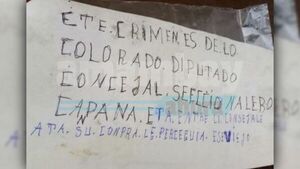 ÉTE. CRIMEN. ES DE. LO
COLORADO. DIPUTADO
CONCEJAL. SEFCCIONALERO
CAPANA. ETA. ENTRE LI CONSEJALE
ATA. SU. CONPRA. LE. PERCEGUIA. ESE VIEJO